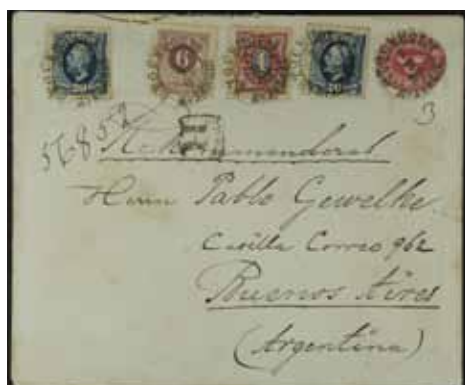 20 6 4 20
56852
3
R
Rekommenderas
Herrn Pablo Gewelke
Casilla Correo 962
Buenos Aires
(Argentina)